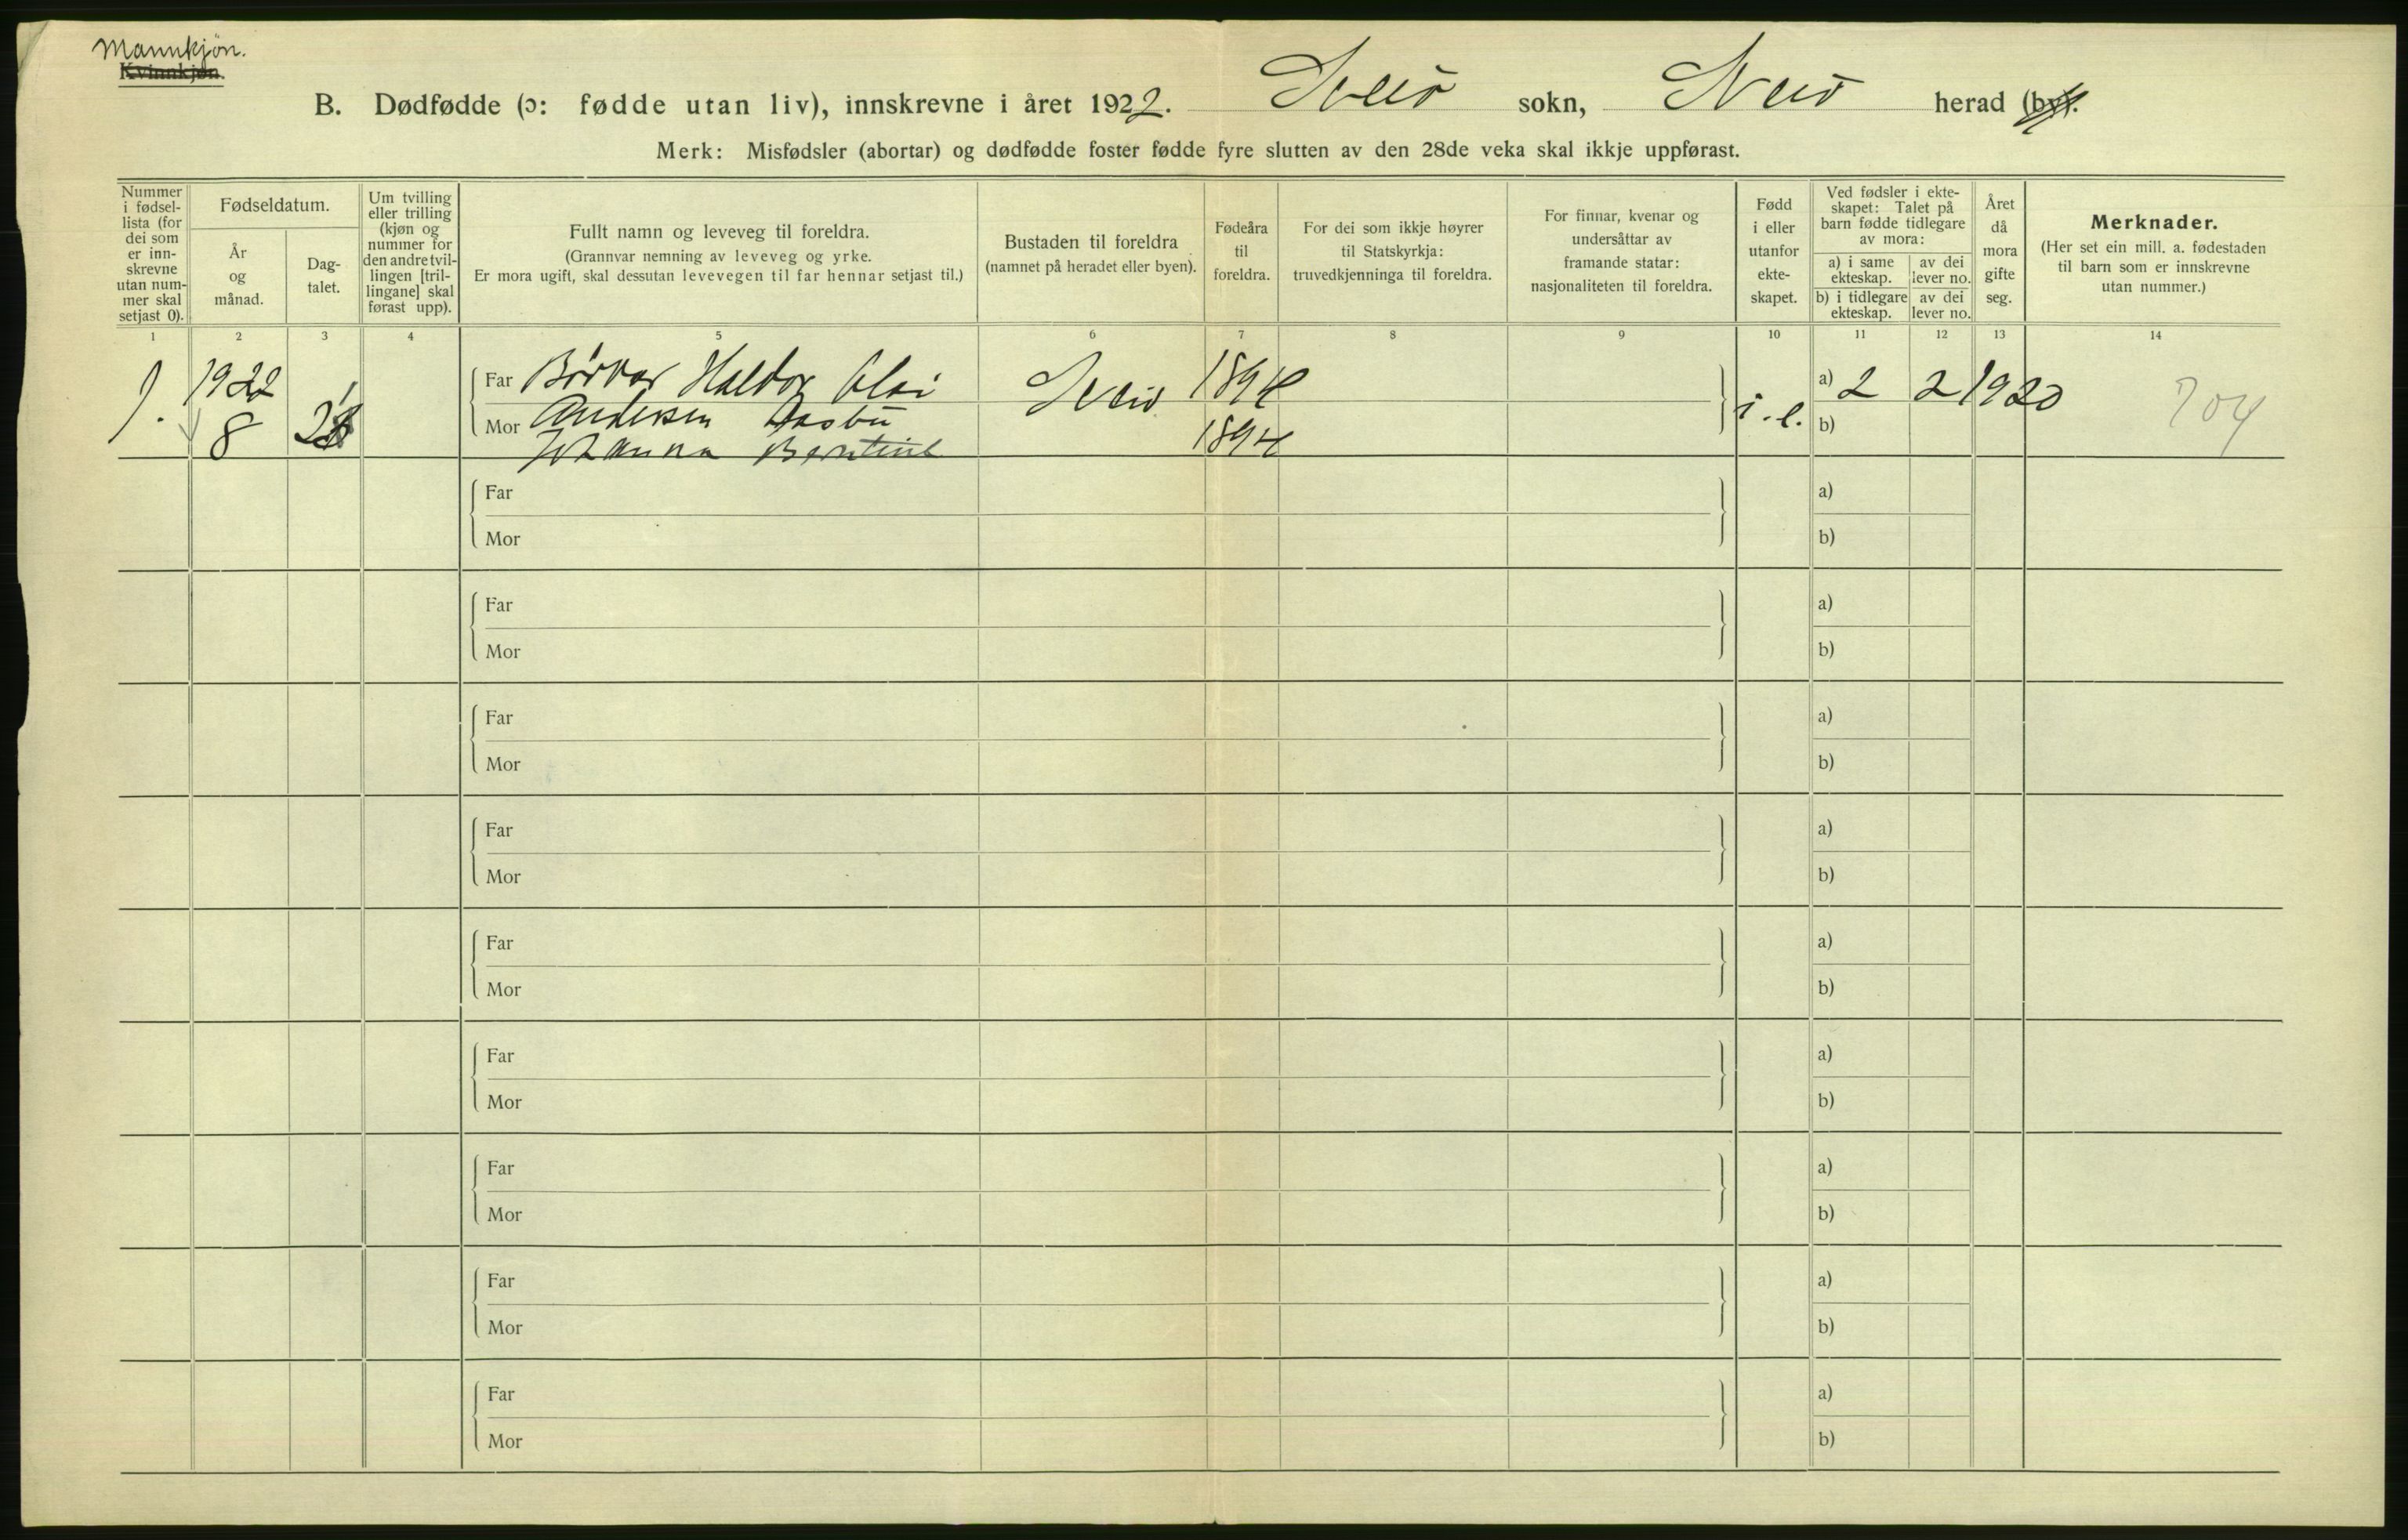 Mannkjøn.
Kvinnkjøn.
B. Dødfødde (ɔ: fødde utan liv), innskrevne i året 1922. Sveio sokn, Sveio herad (by).
Merk: Misfødsler (abortar) og dødfødde foster fødde fyre slutten av den 28de veka skal ikkje uppførast.
Nummer i fødsel-lista (for dei som er inn-skrevne utan num-mer skal setjast 0).
Fødseldatum.
År og månad.
Dag-talet.
Um tvilling eller trilling (kjøn og nummer for den andre tvil-lingen [tril-lingane] skal førast upp).
Fullt namn og leveveg til foreldra.
(Grannvar nemning av leveveg og yrke.
Er mora ugift, skal dessutan levevegen til far hennar setjast til.)
Bustaden til foreldra
(namnet på heradet eller byen).
Fødeåra til foreldra.
For dei som ikkje høyrer til Statskyrkja: truvedkjenninga til foreldra.
For finnar, kvenar og undersåttar av framande statar: nasjonaliteten til foreldra.
Fødd i eller utanfor ekte-skapet.
Ved fødsler i ekte-skapet: Talet på barn fødde tidlegare av mora:
a) i same ekteskap.
av dei lever no.
b) i tidlegare ekteskap.
av dei lever no.
Året då mora gifte seg.
Merknader.
(Her set ein mill. a. fødestaden til barn som er innskrevne utan nummer.)
1 2 3 4 5 6 7 8 9 10 11 12 13 14
1. 1922 Far Haldor 1894 a) 2 2 1920 704
8 Mor Andersen Sveio i. e. b)
Johanna Berntine 1894
Far a)
Mor b)
Far a)
Mor b)
Far a)
Mor b)
Far a)
Mor b)
Far a)
Mor b)
Far a)
Mor b)
Far a)
Mor b)
Far a)
Mor b)
Far a)
Mor b)